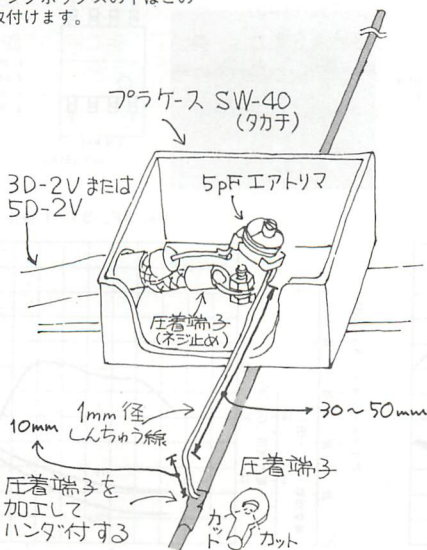 ングボックスの中はこの
取付けます。
プラケース SW-40
(タカチ)
3D-2Vまたは
5D-2V
5pFエアトリマ
圧着端子
(ネジ止め)
1mm径
しんちゅう線
30～50mm
10mm
圧着端子
圧着端子を
加工して
ハンダ付する
カット
カット